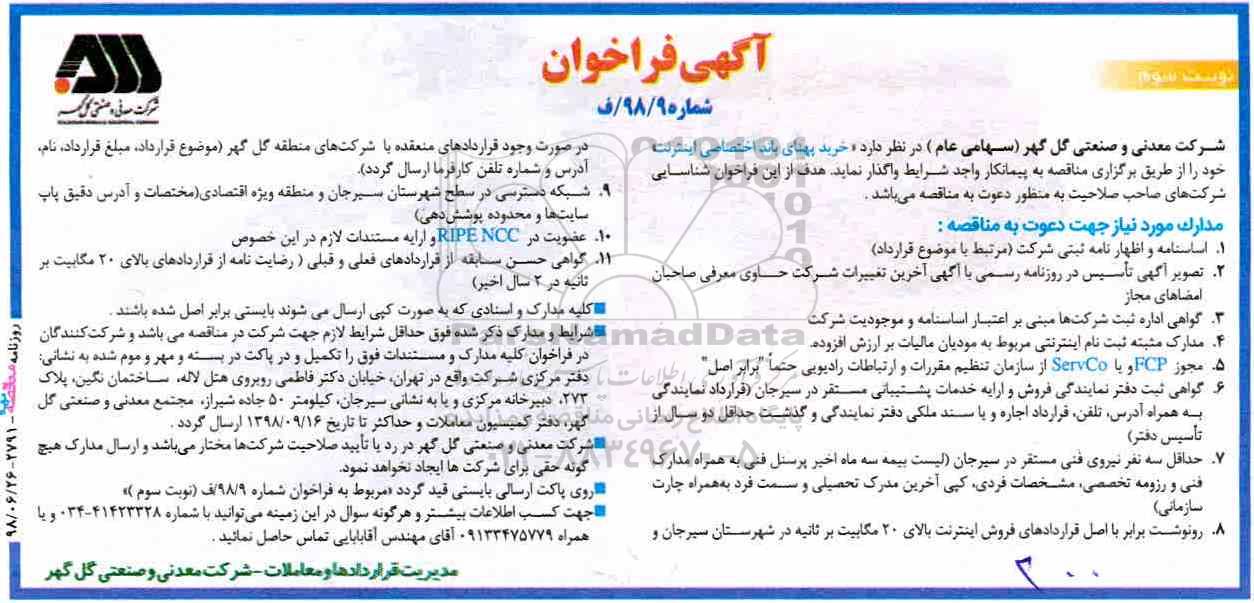 آگهی فراخوان
شماره ۹۸/۹/ف
نوبت سوم
شرکت معدنی و صنعتی گل گهر
شرکت معدنی و صنعتی گل گهر (سهامی عام ) در نظر دارد « خرید پهنای باند اختصاصی اینترنت»
خود را از طریق برگزاری مناقصه به پیمانکار واجد شرایط واگذار نماید. هدف از این فراخوان شناسایی
شرکت‌های صاحب صلاحیت به منظور دعوت به مناقصه می‌باشد .
مدارک مورد نیاز جهت دعوت به مناقصه :
۱. اساسنامه و اظهار نامه ثبتی شرکت (مرتبط با موضوع قرارداد)
۲. تصویر آگهی تأسیس در روزنامه رسمی با آگهی آخرین تغییرات شرکت حاوی معرفی صاحبان
امضاهای مجاز
۳. گواهی اداره ثبت شرکت‌ها مبنی بر اعتبار اساسنامه و موجودیت شرکت
۴. مدارک مثبته ثبت نام اینترنتی مربوط به مودیان مالیات بر ارزش افزوده.
۵. مجوز FCP و یا ServCo از سازمان تنظیم مقررات و ارتباطات رادیویی حتماً "برابر اصل"
۶. گواهی ثبت دفتر نمایندگی فروش و ارایه خدمات پشتیبانی مستقر در سیرجان (قرارداد نمایندگی
به همراه آدرس، تلفن، قرارداد اجاره و یا سند ملکی دفتر نمایندگی و گذشت حداقل دو سال از
تأسیس دفتر)
۷. حداقل سه نفر نیروی فنی مستقر در سیرجان (لیست بیمه سه ماه اخیر پرسنل فنی به همراه مدارک
فنی و رزومه تخصصی، مشخصات فردی، کپی آخرین مدرک تحصیلی و سمت فرد به‌همراه چارت
سازمانی)
۸. رونوشت برابر با اصل قراردادهای فروش اینترنت بالای ۲۰ مگابیت بر ثانیه در شهرستان سیرجان و
در صورت وجود قراردادهای منعقده با شرکت‌های منطقه گل گهر (موضوع قرارداد، مبلغ قرارداد، نام،
آدرس و شماره تلفن کارفرما ارسال گردد).
۹. شبکه دسترسی در سطح شهرستان سیرجان و منطقه ویژه اقتصادی(مختصات و آدرس دقیق پاپ
سایت‌ها و محدوده پوشش‌دهی)
۱۰. عضویت در RIPE NCC و ارایه مستندات لازم در این خصوص
۱۱. گواهی حسن سابقه از قراردادهای فعلی و قبلی ( رضایت نامه از قراردادهای بالای ۲۰ مگابیت بر
ثانیه در ۲ سال اخیر)
■ کلیه مدارک و اسنادی که به صورت کپی ارسال می شوند بایستی برابر اصل شده باشند .
■ شرایط و مدارک ذکر شده فوق حداقل شرایط لازم جهت شرکت در مناقصه می باشد و شرکت‌کنندگان
در فراخوان کلیه مدارک و مستندات فوق را تکمیل و در پاکت در بسته و مهر و موم شده به نشانی:
دفتر مرکزی شرکت واقع در تهران، خیابان دکتر فاطمی روبروی هتل لاله، ساختمان نگین، پلاک
۲۷۳، دبیرخانه مرکزی و یا به نشانی سیرجان، کیلومتر ۵۰ جاده شیراز، مجتمع معدنی و صنعتی گل
گهر، دفتر کمیسیون معاملات و حداکثر تا تاریخ ۱۳۹۸/۰۹/۱۶ ارسال گردد .
■ شرکت معدنی و صنعتی گل گهر در رد یا تأیید صلاحیت شرکت‌ها مختار می‌باشد و ارسال مدارک هیچ
گونه حقی برای شرکت ها ایجاد نخواهد نمود.
■ روی پاکت ارسالی بایستی قید گردد «مربوط به فراخوان شماره ۹۸/۹/ف (نوبت سوم )»
■ جهت کسب اطلاعات بیشتر و هرگونه سوال در این زمینه می‌توانید با شماره ۴۱۴۲۳۳۲۸-۰۳۴ و یا
همراه ۰۹۱۳۳۴۷۵۷۷۹ آقای مهندس آقابابایی تماس حاصل نمائید .
مدیریت قراردادها و معاملات - شرکت معدنی و صنعتی گل گهر
ParsNamadData
پایگاه اطلاع رسانی مناقصه و مزایده
۰۲۱-۸۸۳۴۹۶۷۰-۵